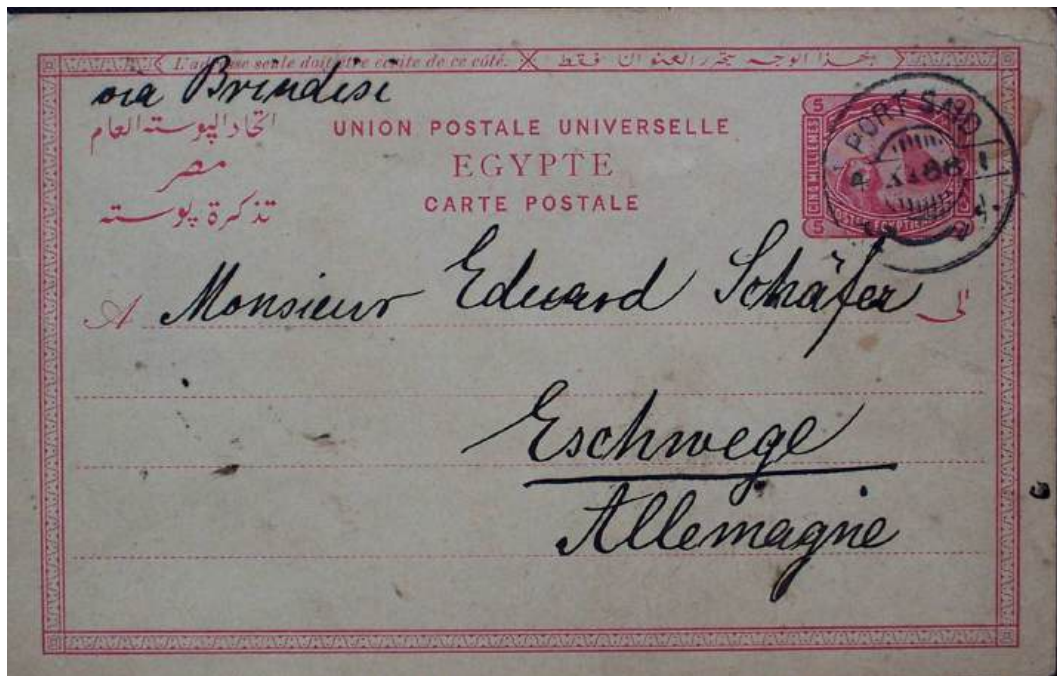 L'adresse seule doit être écrite de ce côté. بهذا الوجه يحرر العنوان فقط
via Brindisi
اتحاد البوسته العام
مصر
تذكرة بوسته
UNION POSTALE UNIVERSELLE
EGYPTE
CARTE POSTALE
5 5
CINQ MILLIEMES
5 POSTES EGYPTIENNES
PORT SAID
88
A Monsieur Eduard Schäfer الى
Eschwege
Allemagne